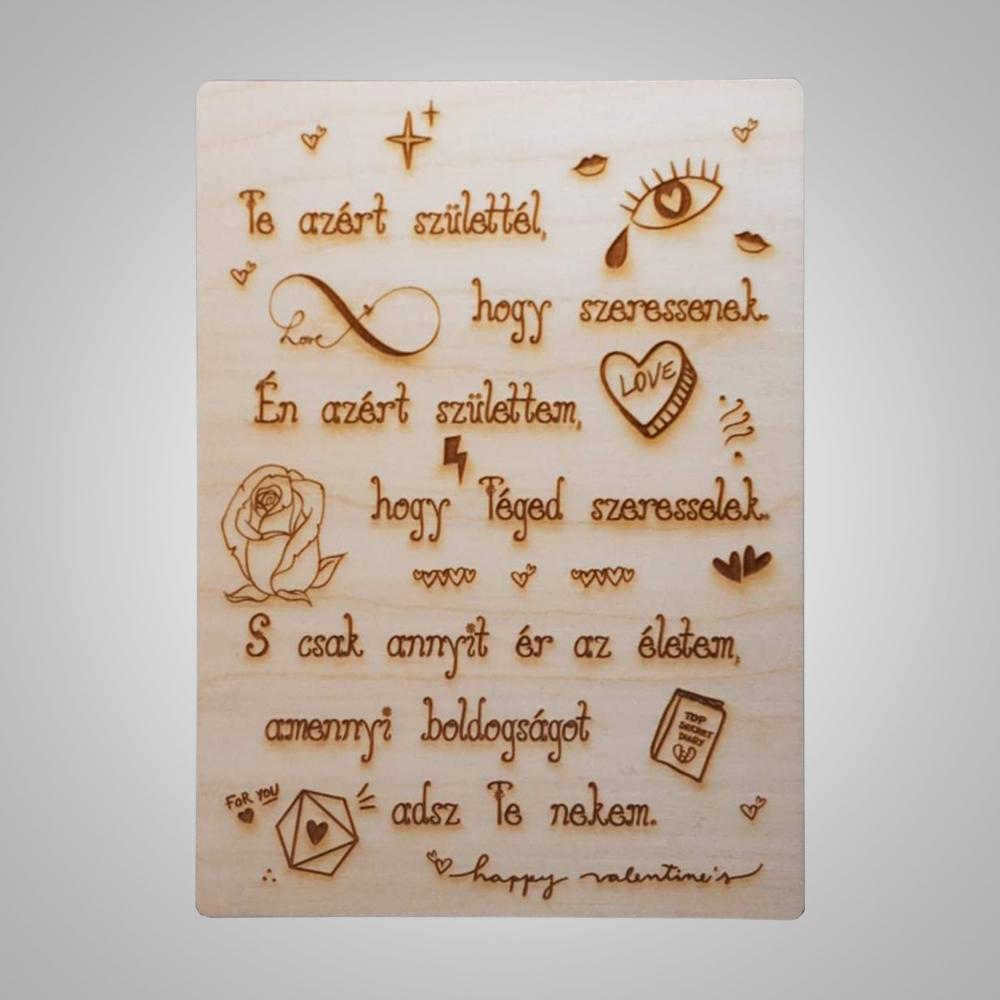 Te azért születtél,
Love
hogy szeressenek.
LOVE
Én azért születtem,
hogy Téged szeresselek.
S csak annyit ér az életem,
amennyi boldogságot
TOP
SECRET
DIARY
FOR YOU
adsz Te nekem.
happy valentine's